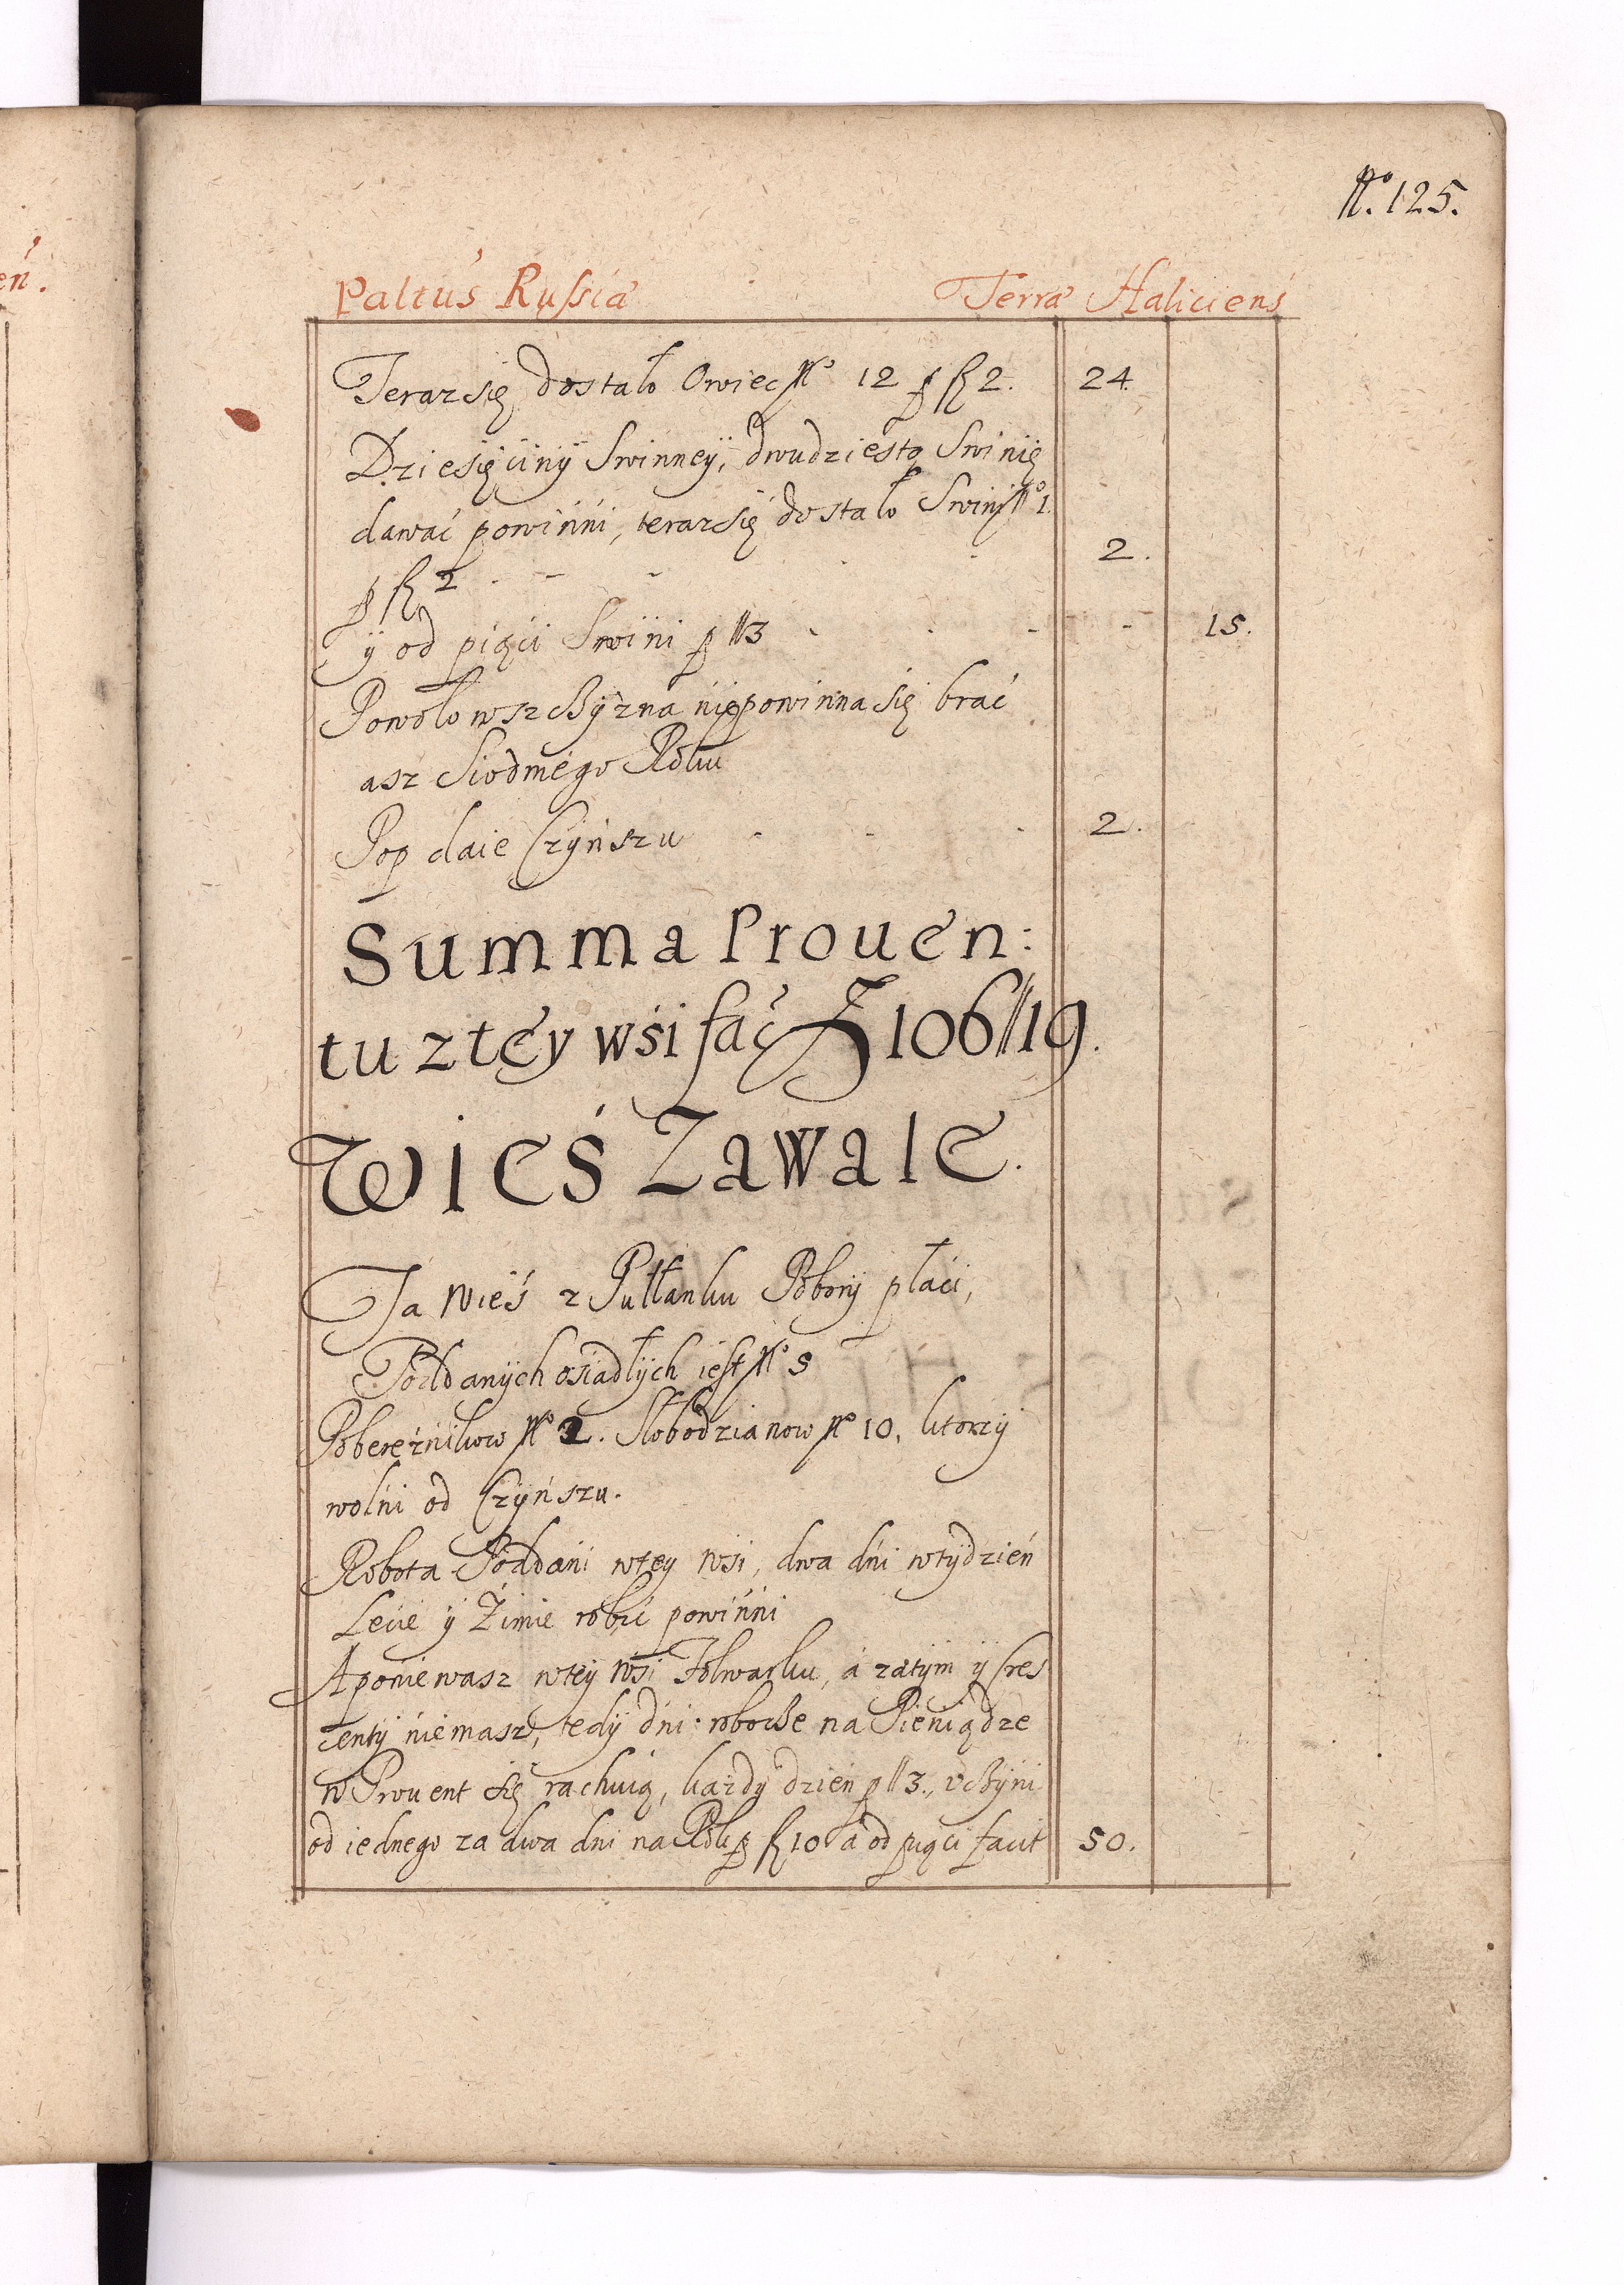 No. 125.
eń.
Paltus Russiæ Terræ Haliciens
Teraz się dostało Owiec No 12 p fl 2. 24.
Dziesięciny Swinney, dwudziestą Swinię
dawać powinni, teraz się dostało Swini No 1.
p fl 2 - - - - - 2.
y od pięci Swini p // 3 - - - - 15.
Powołowszczyzna niepowinna się brać
asz Siodmego Roku
Pop daie Czynszu - - - 2.
Summa Prouen:
tu z tey wsi fac Z 106 // 19.
Wieś Zawale.
Ta Wieś z Pułłanku Pobory płaci,
Poddanych osiadłych iest No 5
Pobereżnikow No 2. Słobodzianow No 10, ktorzy
wolni od Czynszu.
Robota Poddani w tey Wsi, dwa dni w tydzień
Lecie y Zimie robić powinni
A poniewasz w tey Wsi Folwarku, a zatym y Cres
centy niemasz, tedy dni robocze na Pieniądze
w Prouent się rachuią, każdy dzien p // 3., vczyni
od iednego za dwa dni na Rok p fl 10 a od pięci facit 50.